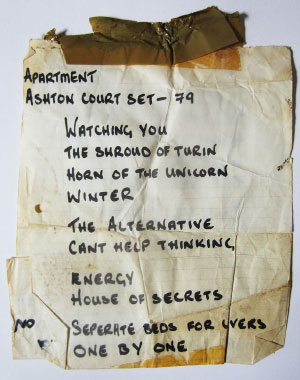 APARTMENT
ASHTON COURT SET - 79
WATCHING YOU
THE SHROUD OF TURIN
HORN OF THE UNICORN
WINTER
THE ALTERNATIVE
CANT HELP THINKING
ENERGY
HOUSE OF SECRETS
NO SEPERATE BEDS FOR LVERS
ONE BY ONE